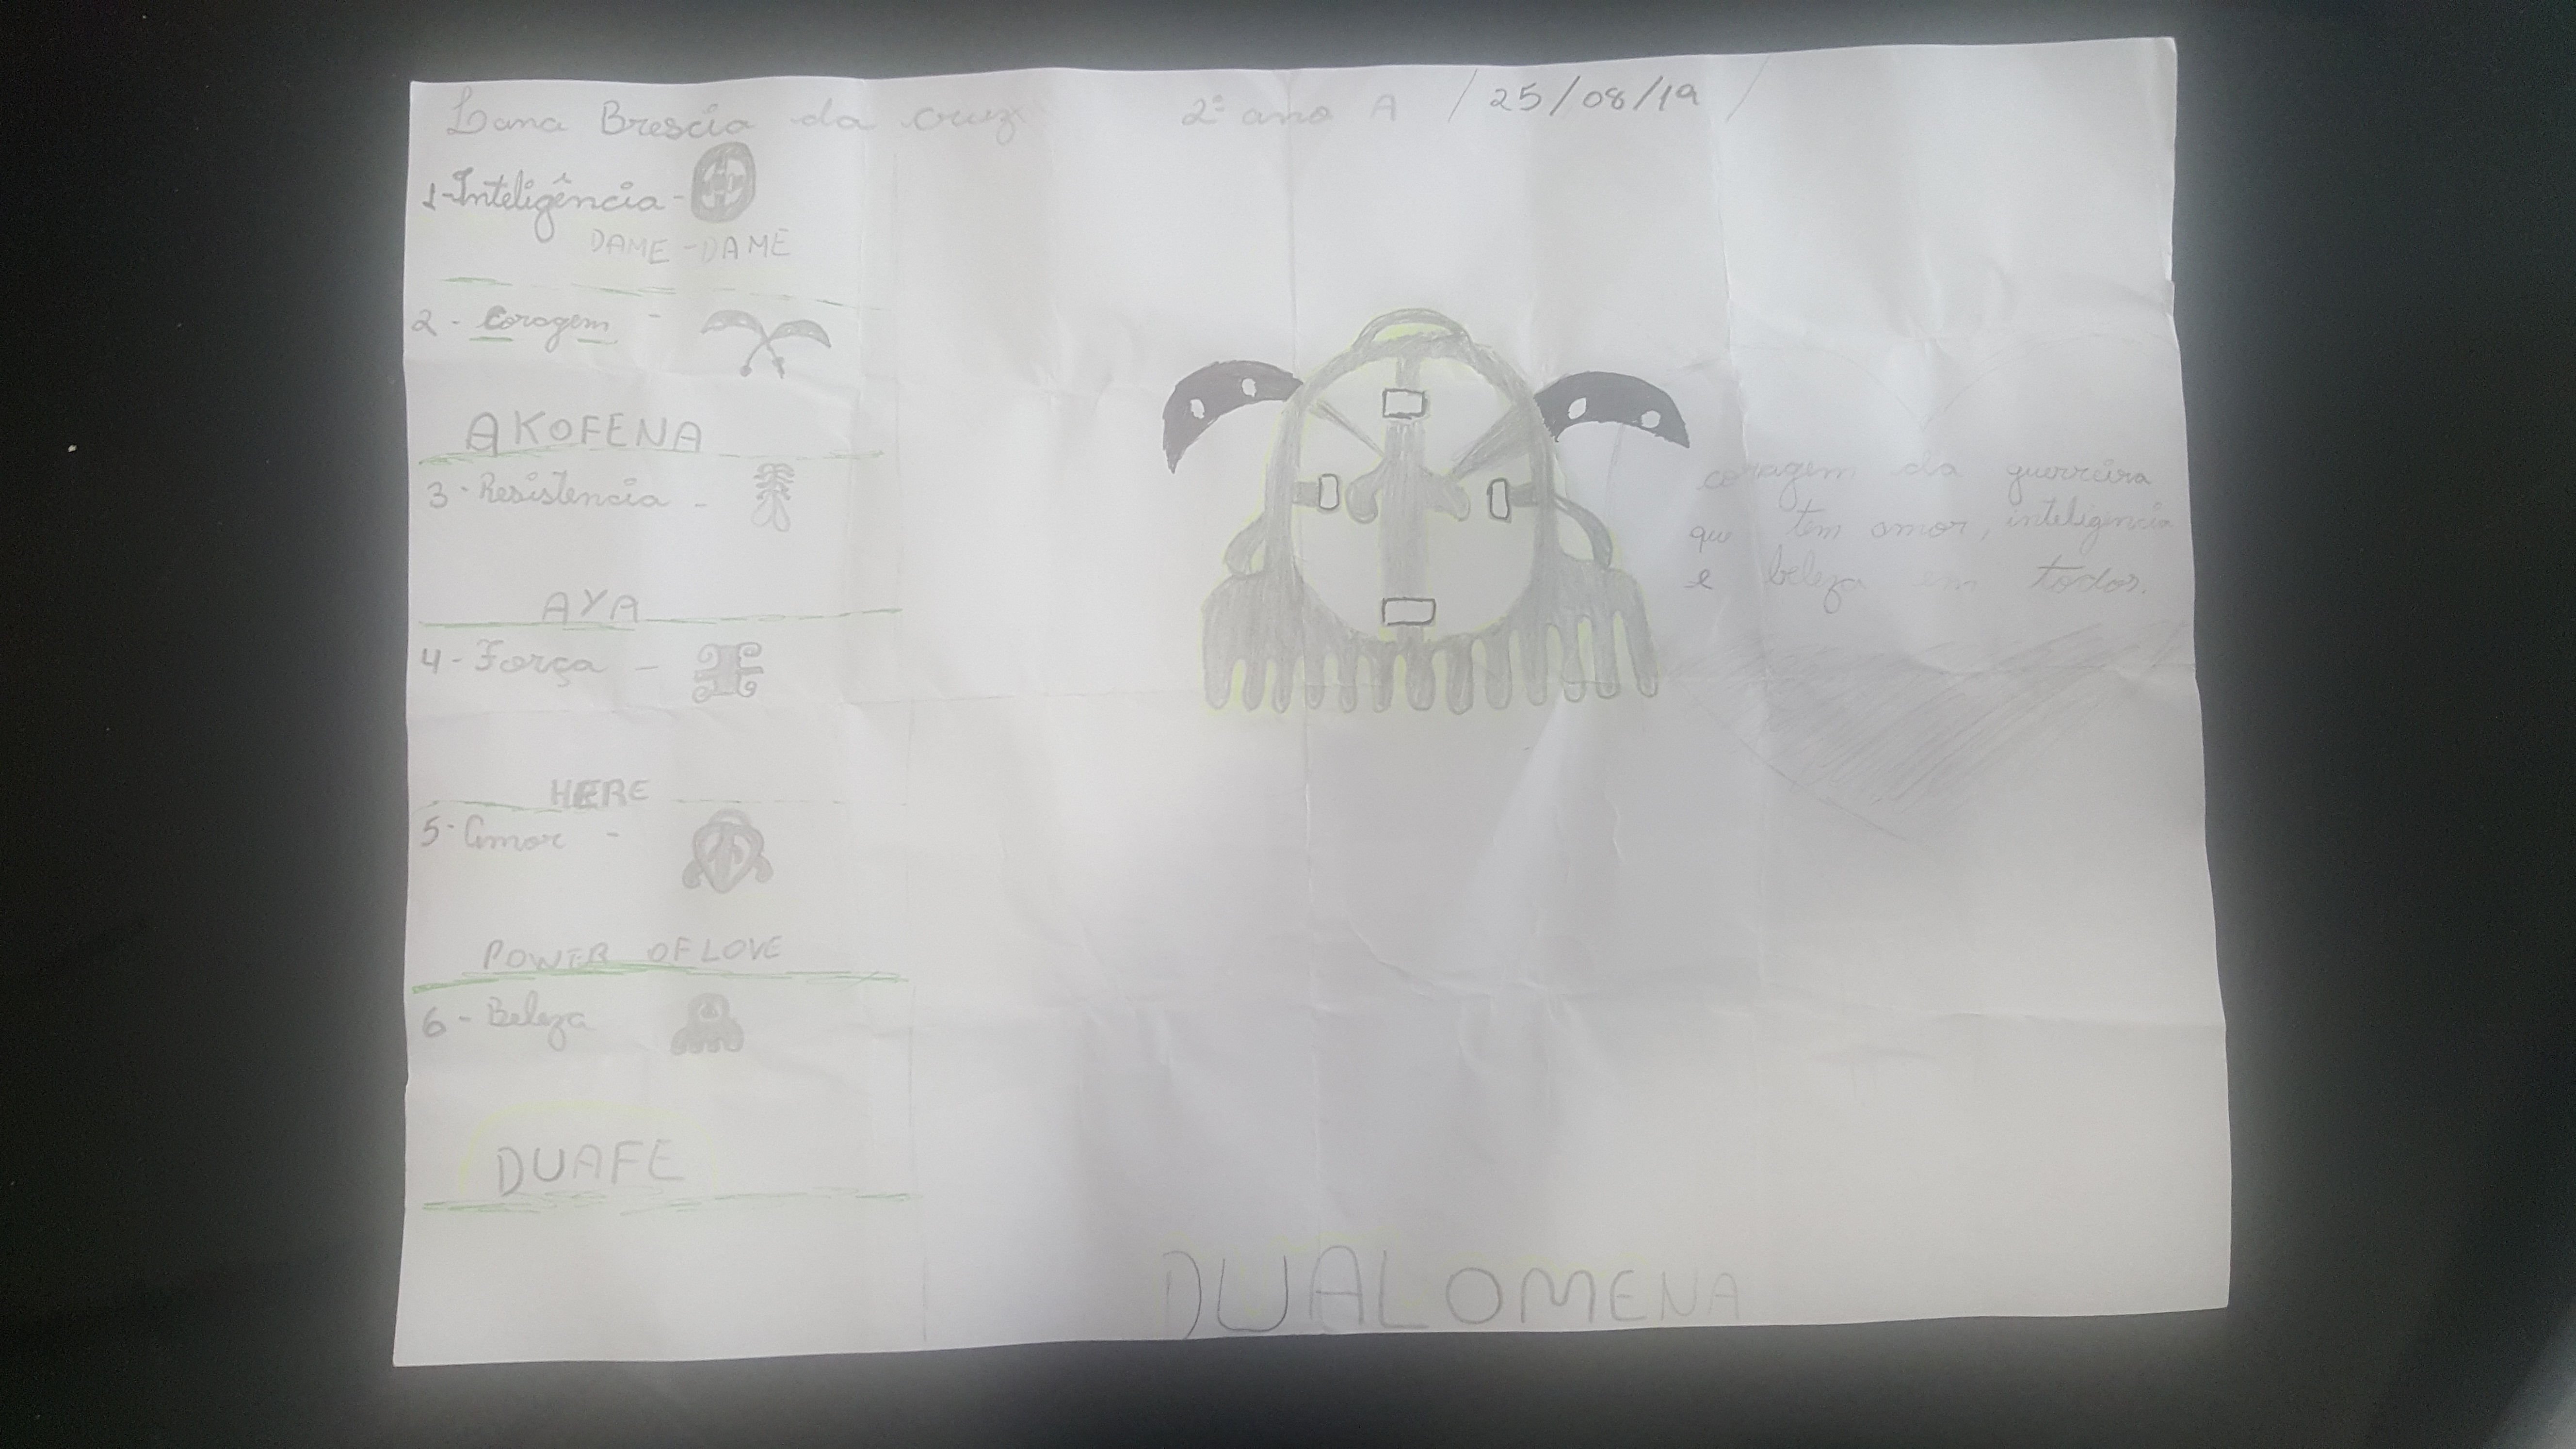 Lana Brescia da cruz 2º ano A / 25/08/19 /
1-Inteligência-
DAME-DAME
2 - coragem -
AKOFENA
3-Resistencia -
AYA
4-Força -
HERE
5-Amor -
POWER OF LOVE
6-Beleza
DUAFE
coragem da guerreira
que tem amor, inteligencia
e beleza em todos.
DUALOMENA